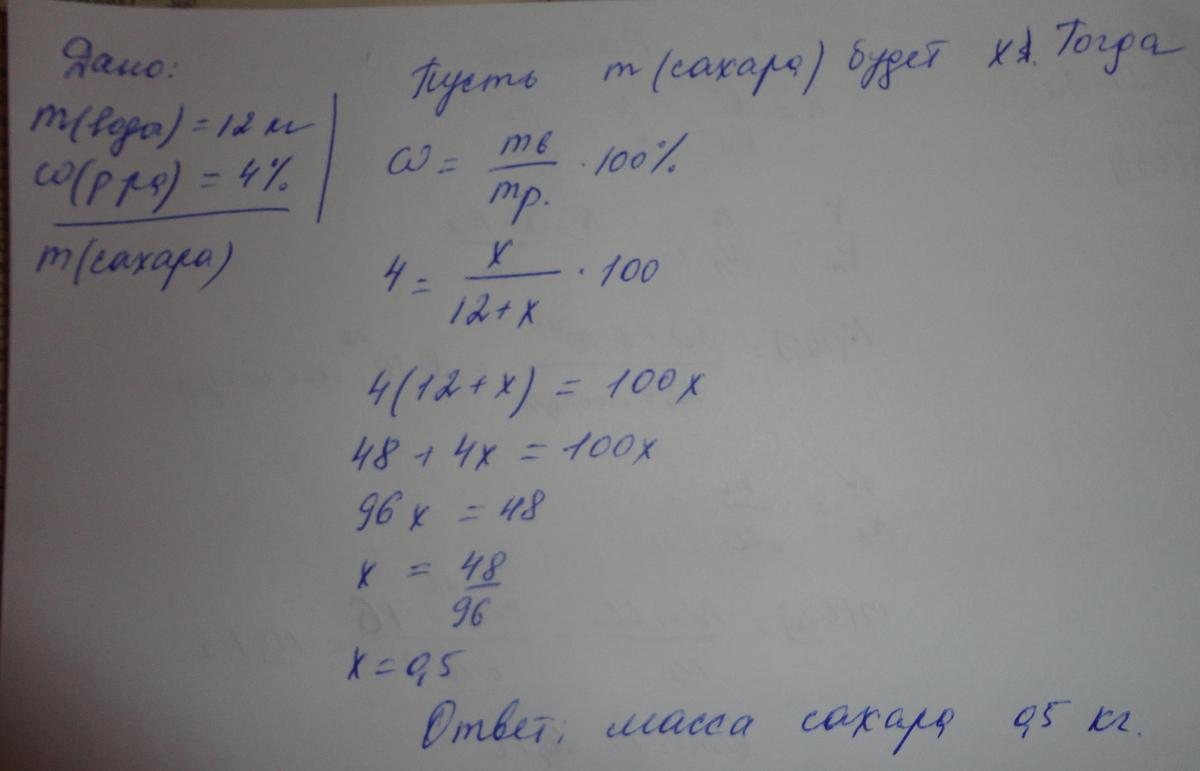 Дано:
m(вода) = 12 кг
ω(р ра) = 4%
m(сахара)
Пусть m(сахара) будет x. Тогда
ω = mв/mр. · 100%
4 = x/12+x · 100
4(12+x) = 100x
48 + 4x = 100x
96x = 48
x = 48/96
x = 0,5
Ответ: масса сахара 0,5 кг.